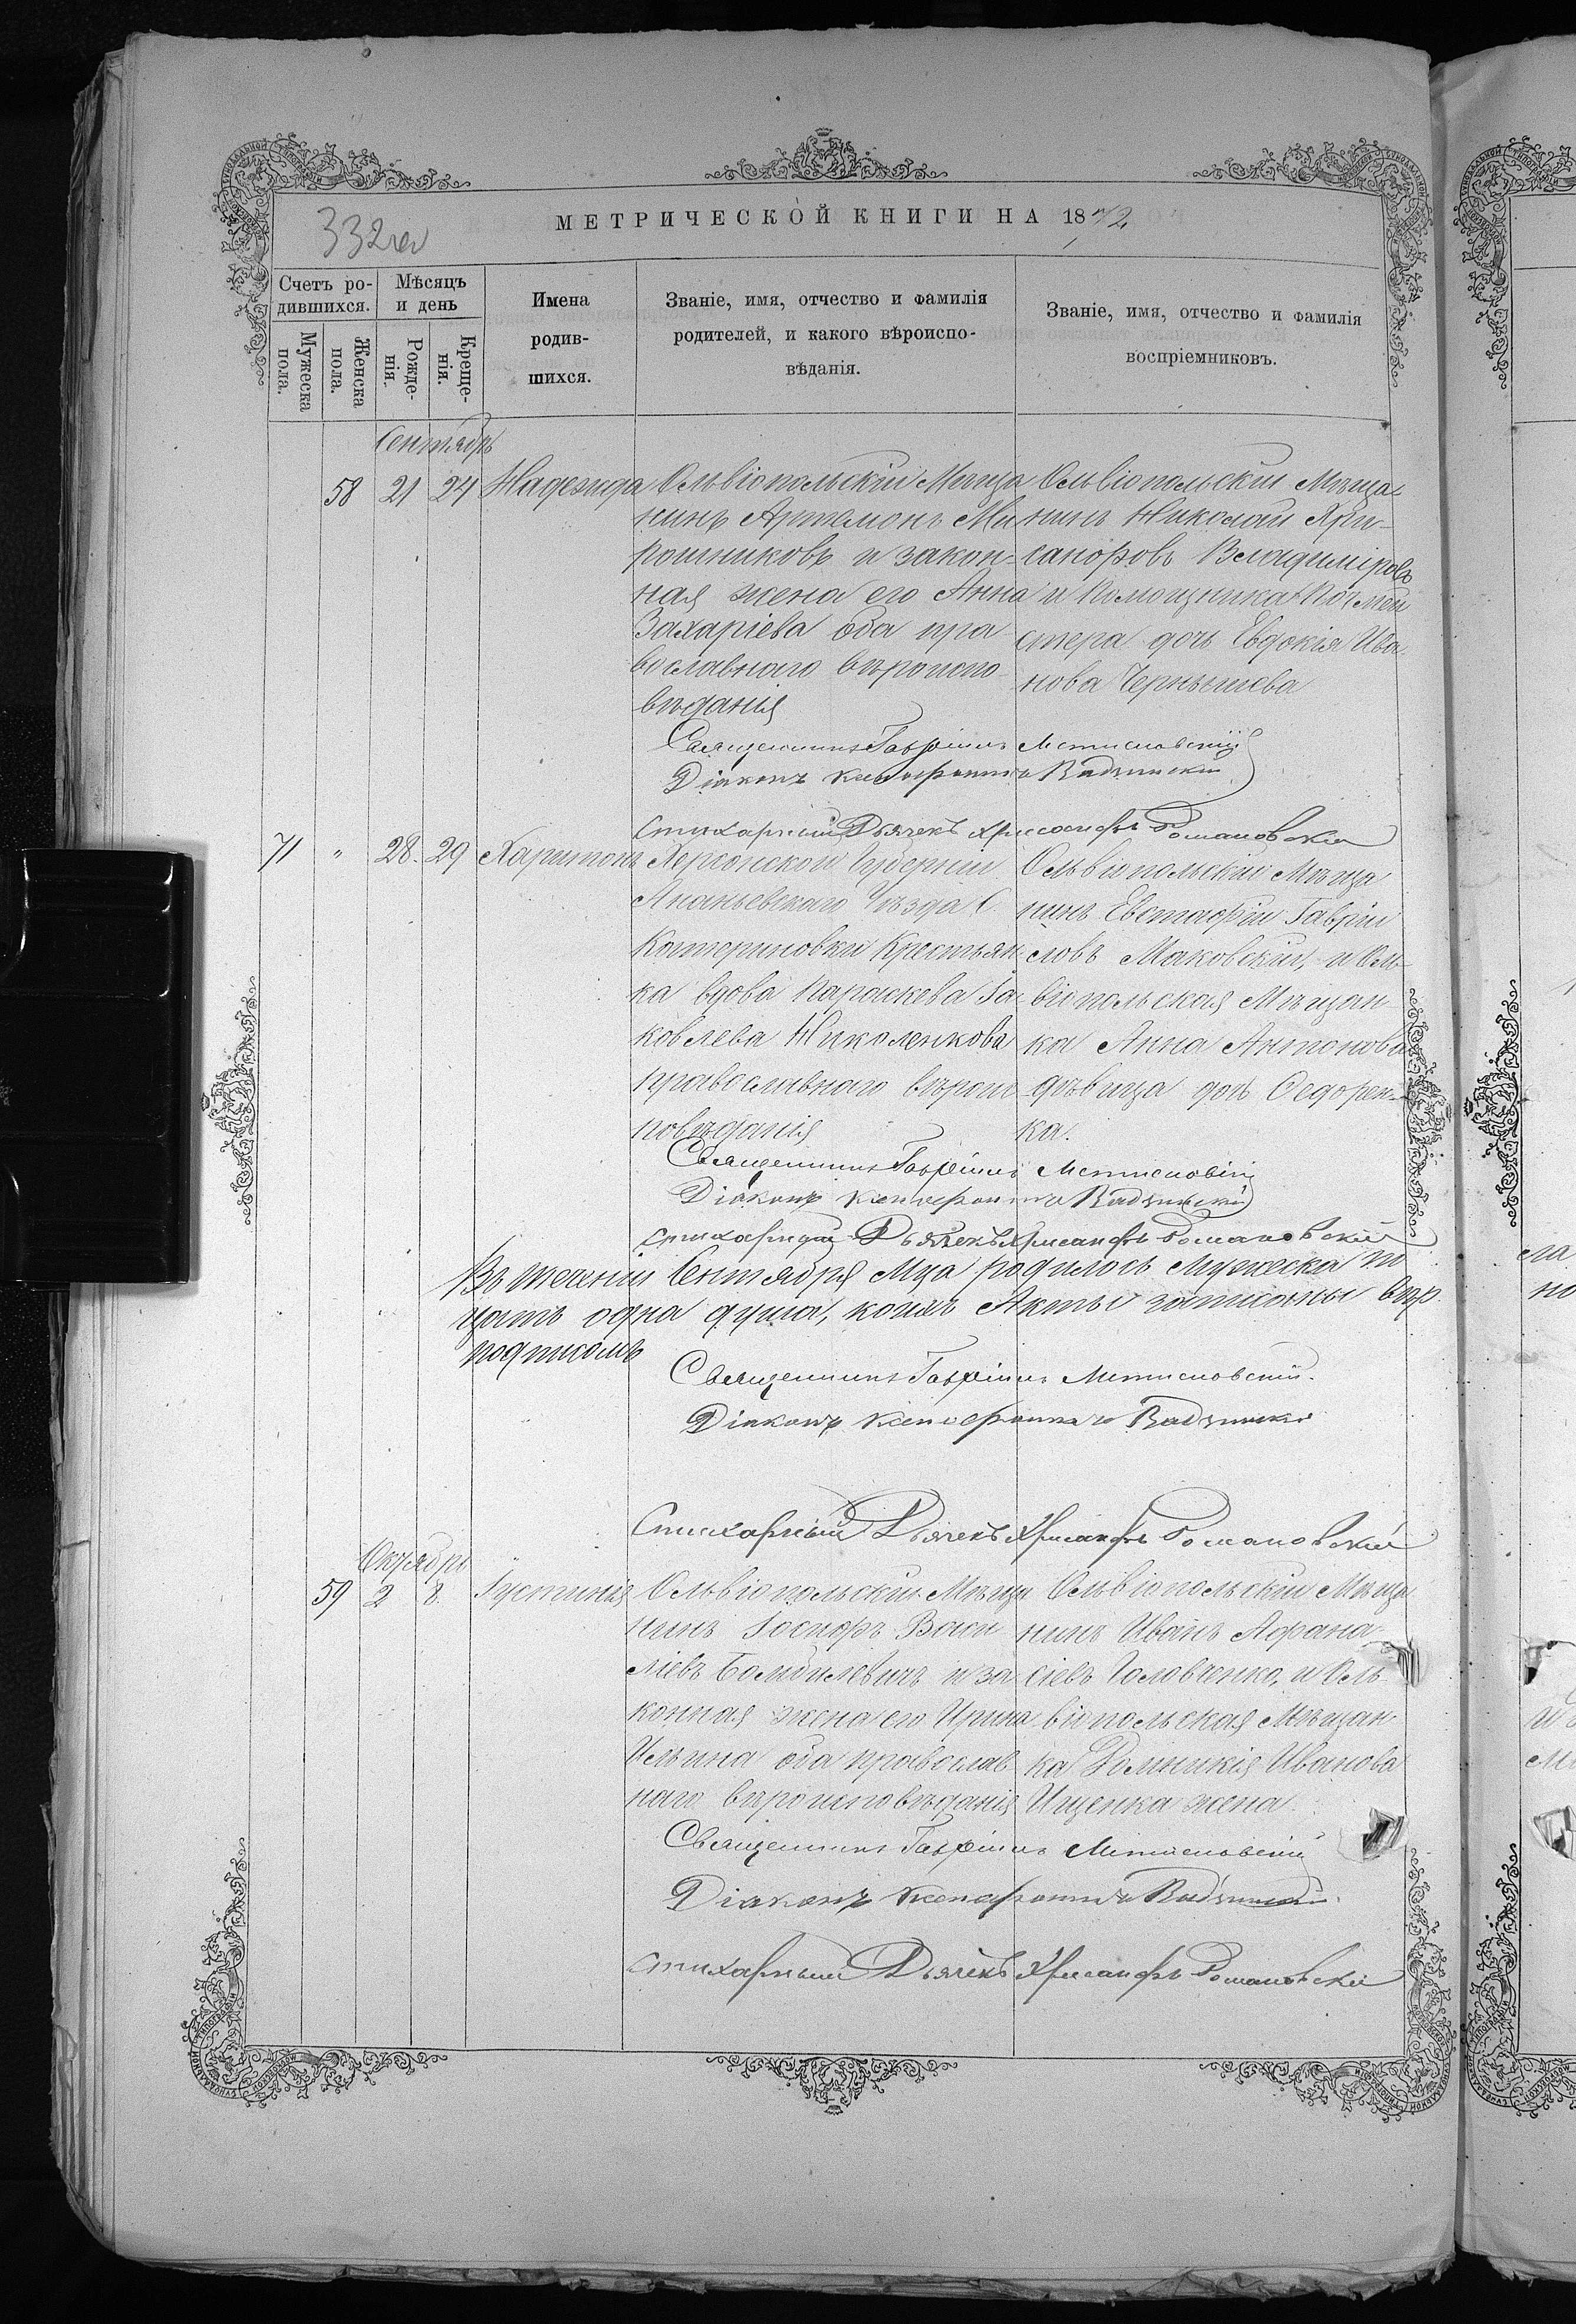 МЕТРИЧЕСКОЙ КНИГИ НА 1872
332
Счетъ ро-
дившихся.
Мужеска пола.
Женска пола.
Мѣсяцъ и день
Рожде-
нія.
Креще-
нія.
Имена
родив-
шихся.
Званіе, имя, отчество и фамилія
родителей, и какого вѣроиспо-
вѣданія.
Званіе, имя, отчество и фамилія
воспріемниковъ.
Сентябрь
58 21 24 Надежда
Ольвіопольскій Мѣща
нинъ Артемонъ Ми
рошниковъ и закон-
ная жена его Анна
Захаріева оба пра
вославнаго вѣроиспо
вѣданія
Ольвіопольскій Мѣща
нинъ Николай Хри-
санфовъ Владиміровъ
и Помощника Почмей
стера дочь Евдокія Ива
нова Чернышева
Священникъ Гавріилъ Мстиславскій
Діаконъ Ксенофонтъ
Стихарный Дьячекъ Хрисанфъ Романовскій
71 " 28. 29 Харитонъ
Херсонской Губерніи
Ананьевскаго Уѣзда С.
Катериновки Крестьян
ка вдова Параскева Іа
ковлева Николенкова
православнаго вѣроис
повѣданія
Ольвіопольскій Мѣща
нинъ Евстафій Гаврій
ловъ Маковскій, и Оль-
віопольская Мѣщан
ка Анна Антонова
дѣвица дочь Ѳедорен-
ка.
Священникъ Гавріилъ Мстиславскій
Діаконъ Ксенофонтъ
Стихарный Дьячекъ Хрисанфъ Романовскій
Въ теченіи Сентября Мца родилось Мужеска
одна душа, коихъ Акты записаны вѣр
подписомъ
Священникъ Гавріилъ Мстиславскій.
Діаконъ Ксенофонтъ
Стихарный Дьячекъ Хрисанфъ Романовскій
Октябрь
59 2 8. Іустинія
Ольвіопольскій Мѣща
нинъ Іосифъ Васи
ліевъ и за
конная жена его Ирина
Ильина оба православ
наго вѣроисповѣданія
Ольвіопольскій Мѣща
нинъ Иванъ Афана
сіевъ Головченко, и Оль
віопольская Мѣщан
ка Домникія Иванова
Ищенка жена
Священникъ Гавріилъ Мстиславскій
Діаконъ Ксенофонтъ
Стихарный Дьячекъ Хрисанфъ Романовскій